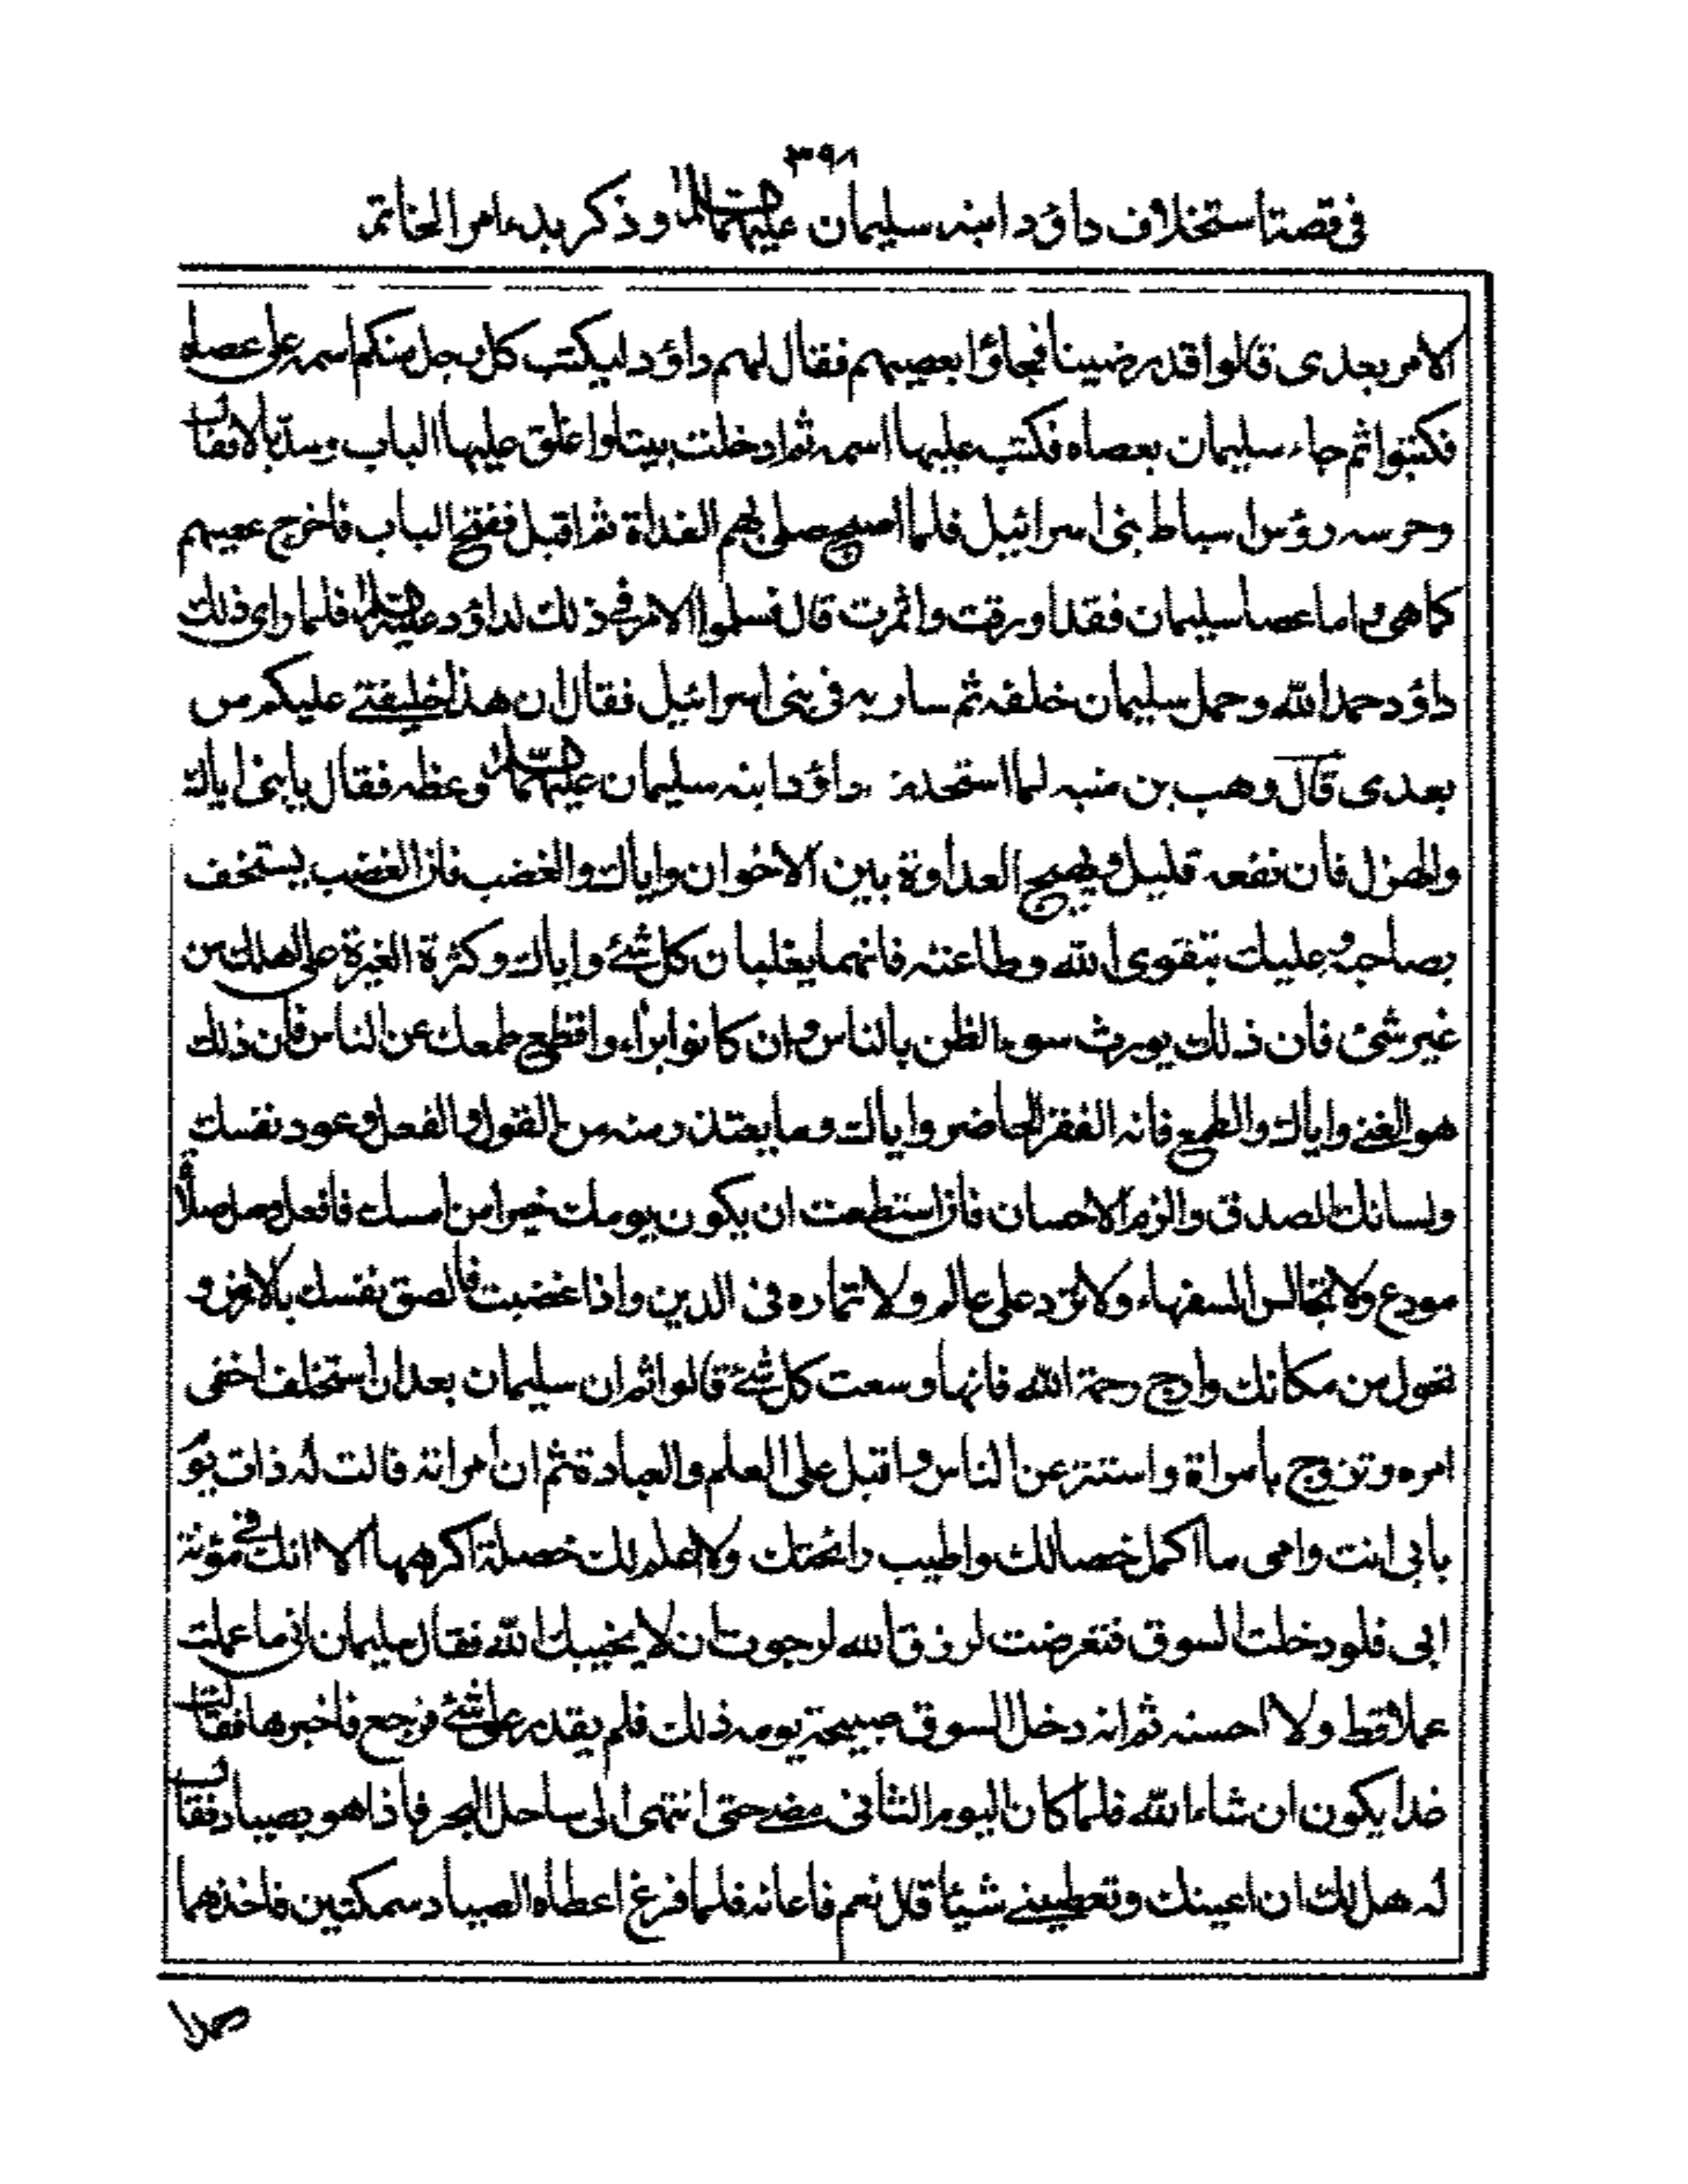 ٣٩٨
فى قصة استخلاف داؤد ابنه سليمان عليهما السلام وذكر بدء امر الخاتم
الامر بعدى قالوا قد رضينا فجاؤا بعصيهم فقال لهم داؤد ليكتب كل رجل منكم اسمه على عصاه
فكتبوا ثم جاء سليمان بعصاه فكتب عليها اسمه ثم ادخلت بيتا واغلق عليها الباب وسد بالاقفال
وحرسه رؤس اسباط بنى اسرائيل فلما اصبح صلى بهم الغداة ثم اقبل ففتح الباب فاخرج عصيهم
كما هى واما عصا سليمان فقد اورقت واثمرت قال فسلموا الامر فى ذلك لداؤد عليه السلام فلما راى ذلك
داؤد حمد الله وحمل سليمان خلفه ثم سار به فى بنى اسرائيل فقال ان هذا خليفتى عليكم من
بعدى قال وهب بن منبه لما استخلف داؤد ابنه سليمان عليهما السلام وعظه فقال يا بنى اياك
والهزل فان نفعه قليل ويهيج العداوة بين الاخوان واياك والغضب فان الغضب يستخف
بصاحبه وعليك بتقوى الله وطاعته فانهما يغلبان كل شئ واياك وكثرة الغيرة على اهلك من
غير شئ فان ذلك يورث سوء الظن بالناس وان كانوا براء واقطع طمعك عن الناس فان ذلك
هو الغنى واياك والطمع فانه الفقر الحاضر واياك وما يعتذر منه من القول والفعل وعود نفسك
ولسانك الصدق والزم الاحسان فان استطعت ان يكون يومك خيرا من امسك فافعل وصل صلاة
مودع ولا تجالس السفهاء ولا ترد على عالم ولا تماره فى الدين واذا غضبت فالصق نفسك بالارض و
تحول من مكانك وارج رحمة الله فانها وسعت كل شئ قالوا ثم ان سليمان بعد ان استخلف اخفى
امره وتزوج بامراة واستتر عن الناس واقبل على العلم والعبادة ثم ان امراته قالت له ذات يوم
بابى انت وامى ما اكمل خصالك واطيب رائحتك ولا اعلم لك خصلة اكرهها الا انك فى مؤنة
ابى فلو دخلت السوق فتعرضت لرزق الله لرجوت ان لا يخيبك الله فقال سليمان انى ما عملت
عملا قط ولا احسنه ثم انه دخل السوق صبيحة يومه ذلك فلم يقدر على شئ فرجع فاخبرها فقالت
غدا يكون ان شاء الله فلما كان اليوم الثانى مضى حتى انتهى الى ساحل البحر فاذا هو بصياد فقال
له هل لك ان اعينك وتعطينى شيئا قال نعم فاعانه فلما فرغ اعطاه الصياد سمكتين فاخذهما